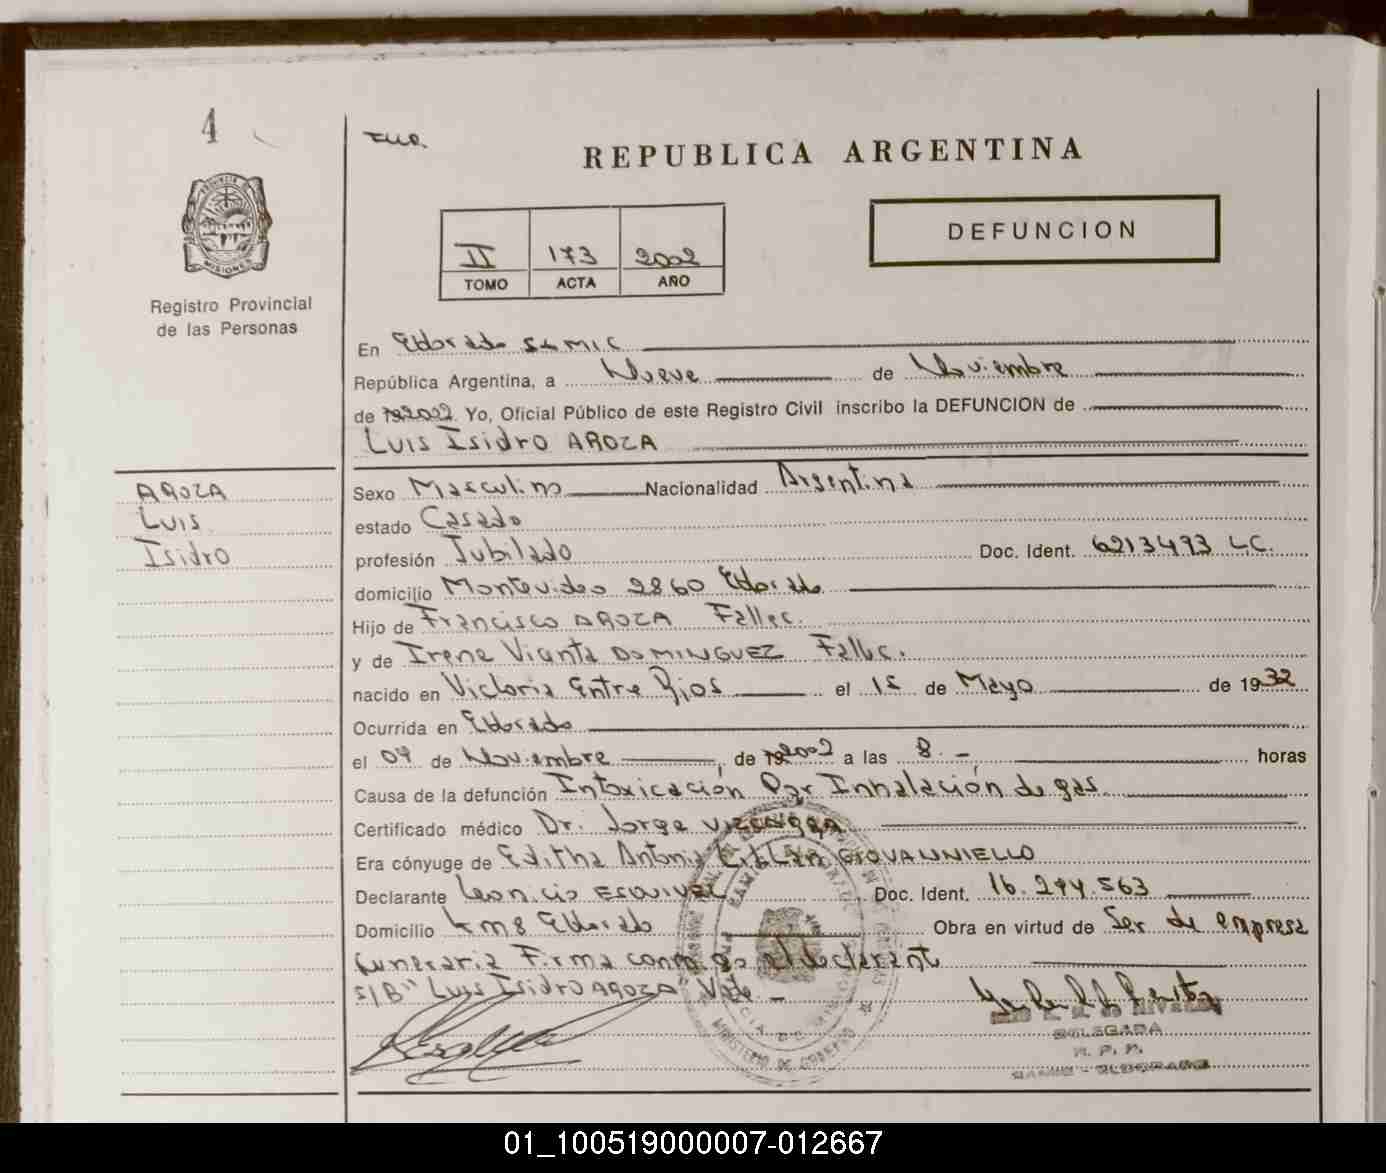 4
REPUBLICA ARGENTINA
PROVINCIA DE
MISIONES
Registro Provincial
de las Personas
II 173 2002
TOMO ACTA AÑO
DEFUNCION
En Eldorado SAMIC
República Argentina, a Nueve de Noviembre
de 2002 Yo, Oficial Público de este Registro Civil inscribo la DEFUNCION de
Luis Isidro AROZA
AROZA
Luis
Isidro
Sexo Masculino Nacionalidad Argentina
estado Casado
profesión Jubilado Doc. Ident. 6213493 L.C.
domicilio Montevideo 2860 Eldorado
Hijo de Francisco AROZA Fallec.
y de Irene Vianta DOMINGUEZ Fallec.
nacido en Victoria Entre Rios el 15 de Mayo de 1932
Ocurrida en Eldorado
el 09 de Noviembre, de 2002 a las 8.- horas
Causa de la defunción Intoxicación Por Inhalación de gas.
Certificado médico Dr. Jorge
Era cónyuge de Editha Antonia Lilian GIOVANNIELLO
Declarante Leonicio ESQUIVEL Doc. Ident. 16.294.563
Domicilio Km 8 Eldorado Obra en virtud de Ser de empresa
funeraria Firma conmigo el declarant
S/B "Luis Isidro AROZA" Vale.-
MINISTERIO DE GOBIERNO
DELEGADA
R. P. P.
SAMIC - ELDORADO
01_100519000007-012667